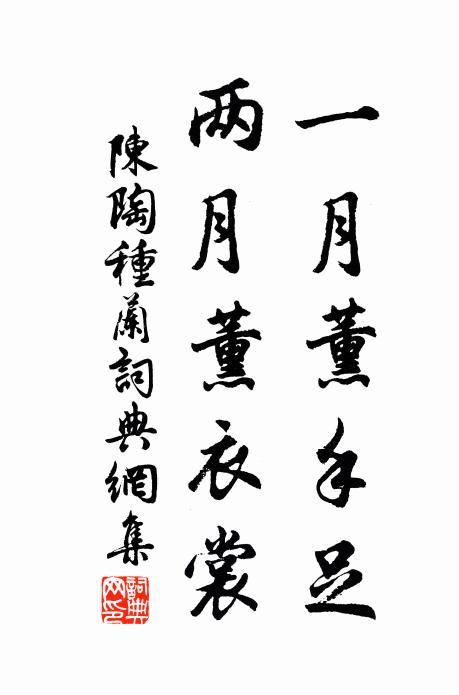 一月薰手足
两月薰衣裳
陳陶種蘭詞典網集
詞典网印